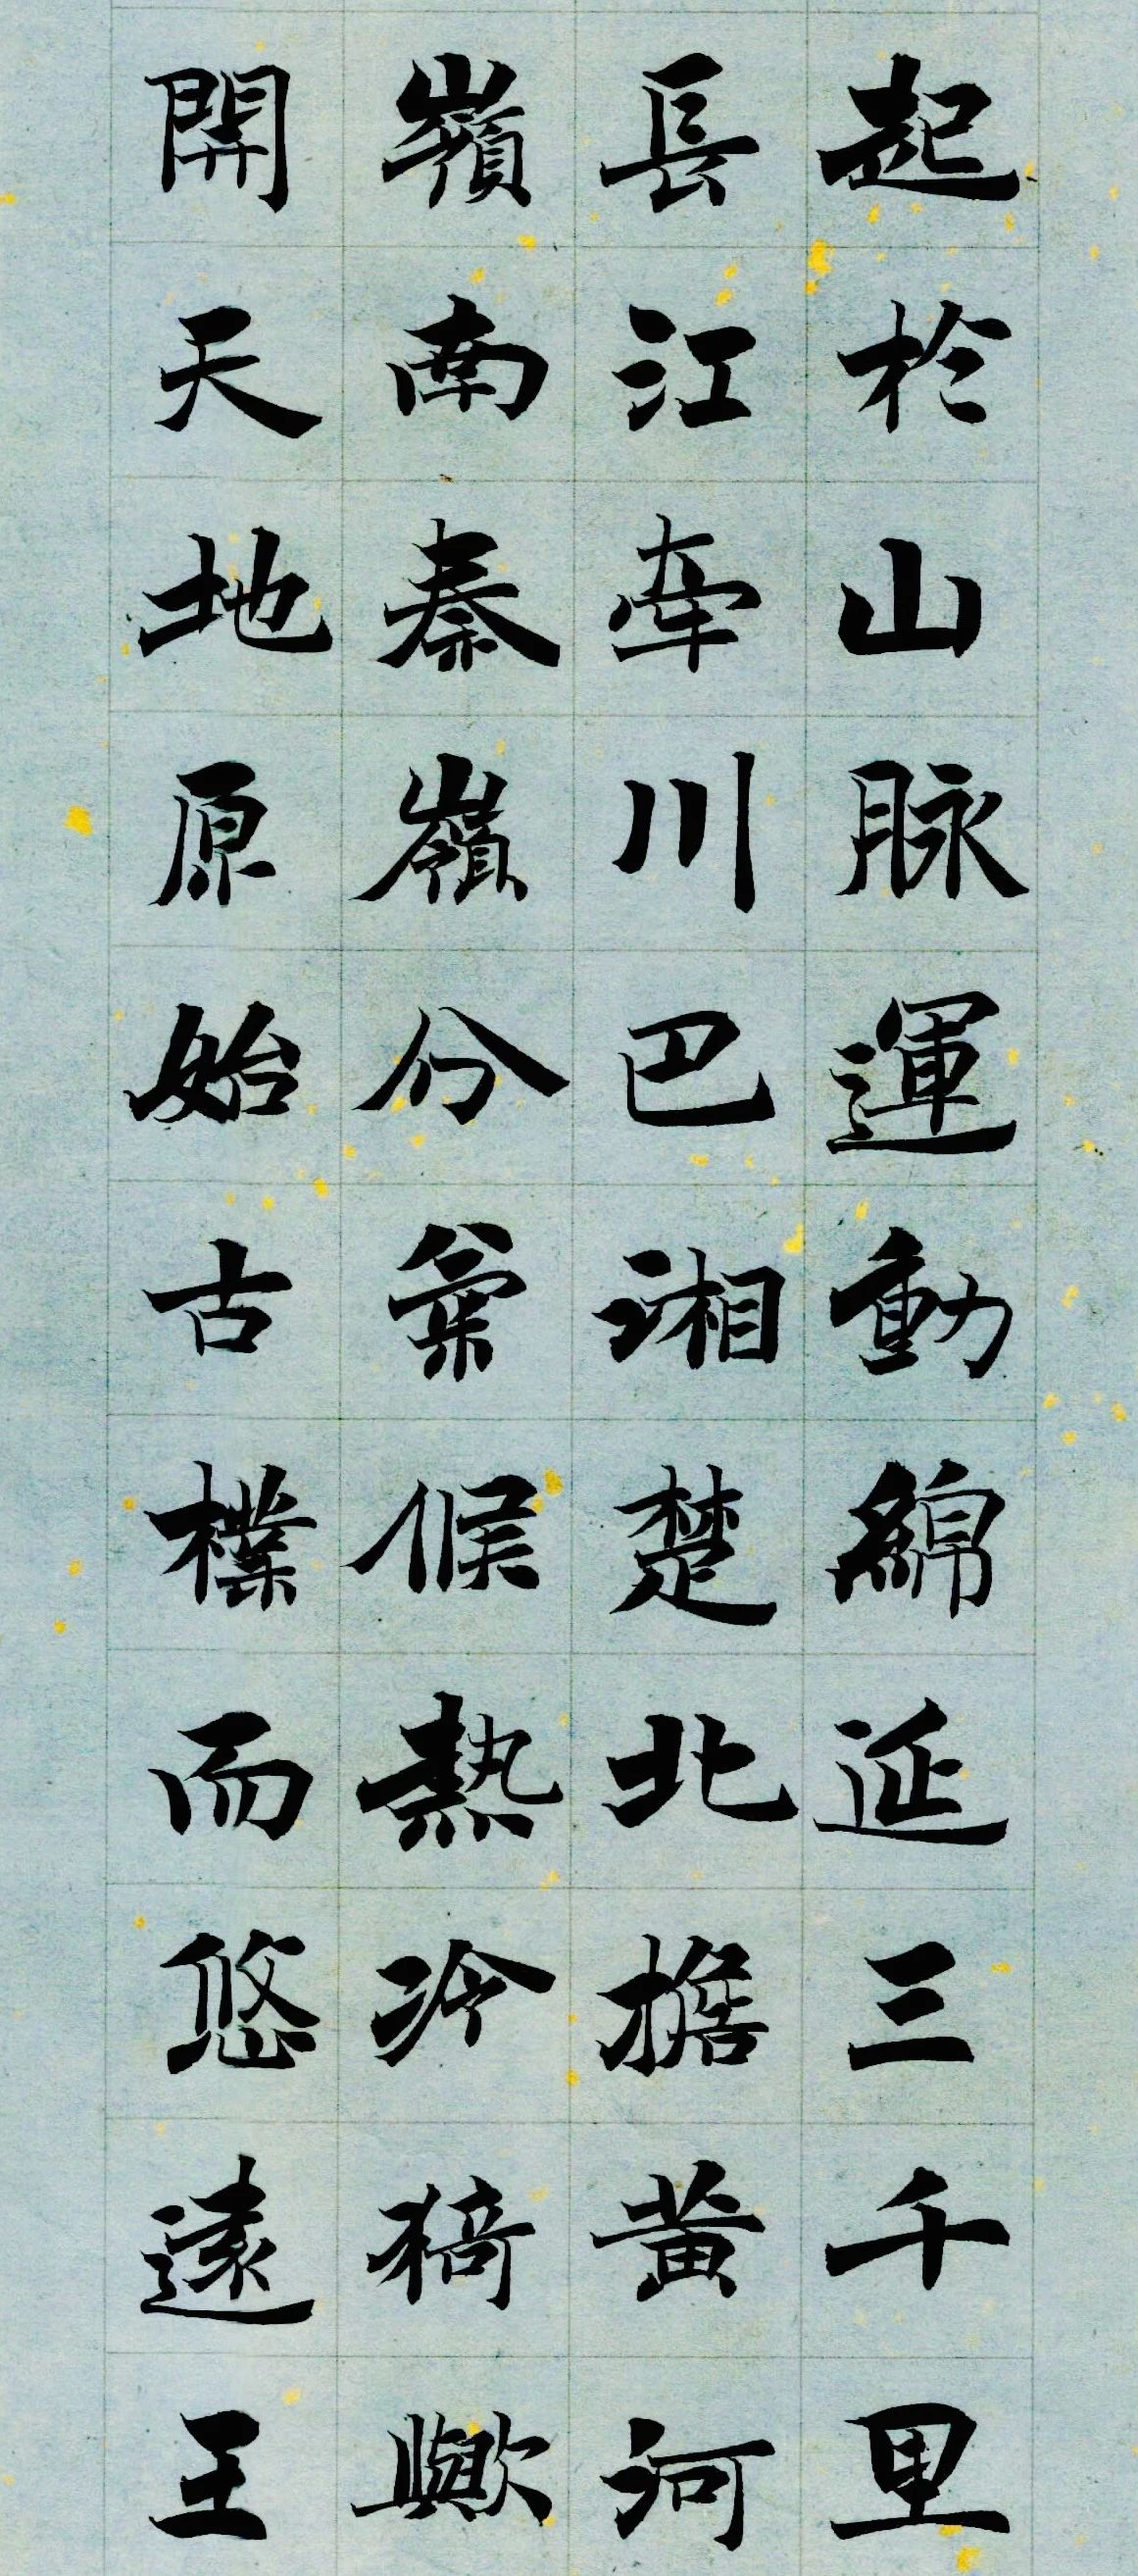 起於山脉運動綿延三千里
長江牽川巴湘楚北擔黃河
嶺南秦嶺分氣候熱冷猗歟
開天地原始古樸而悠遠王